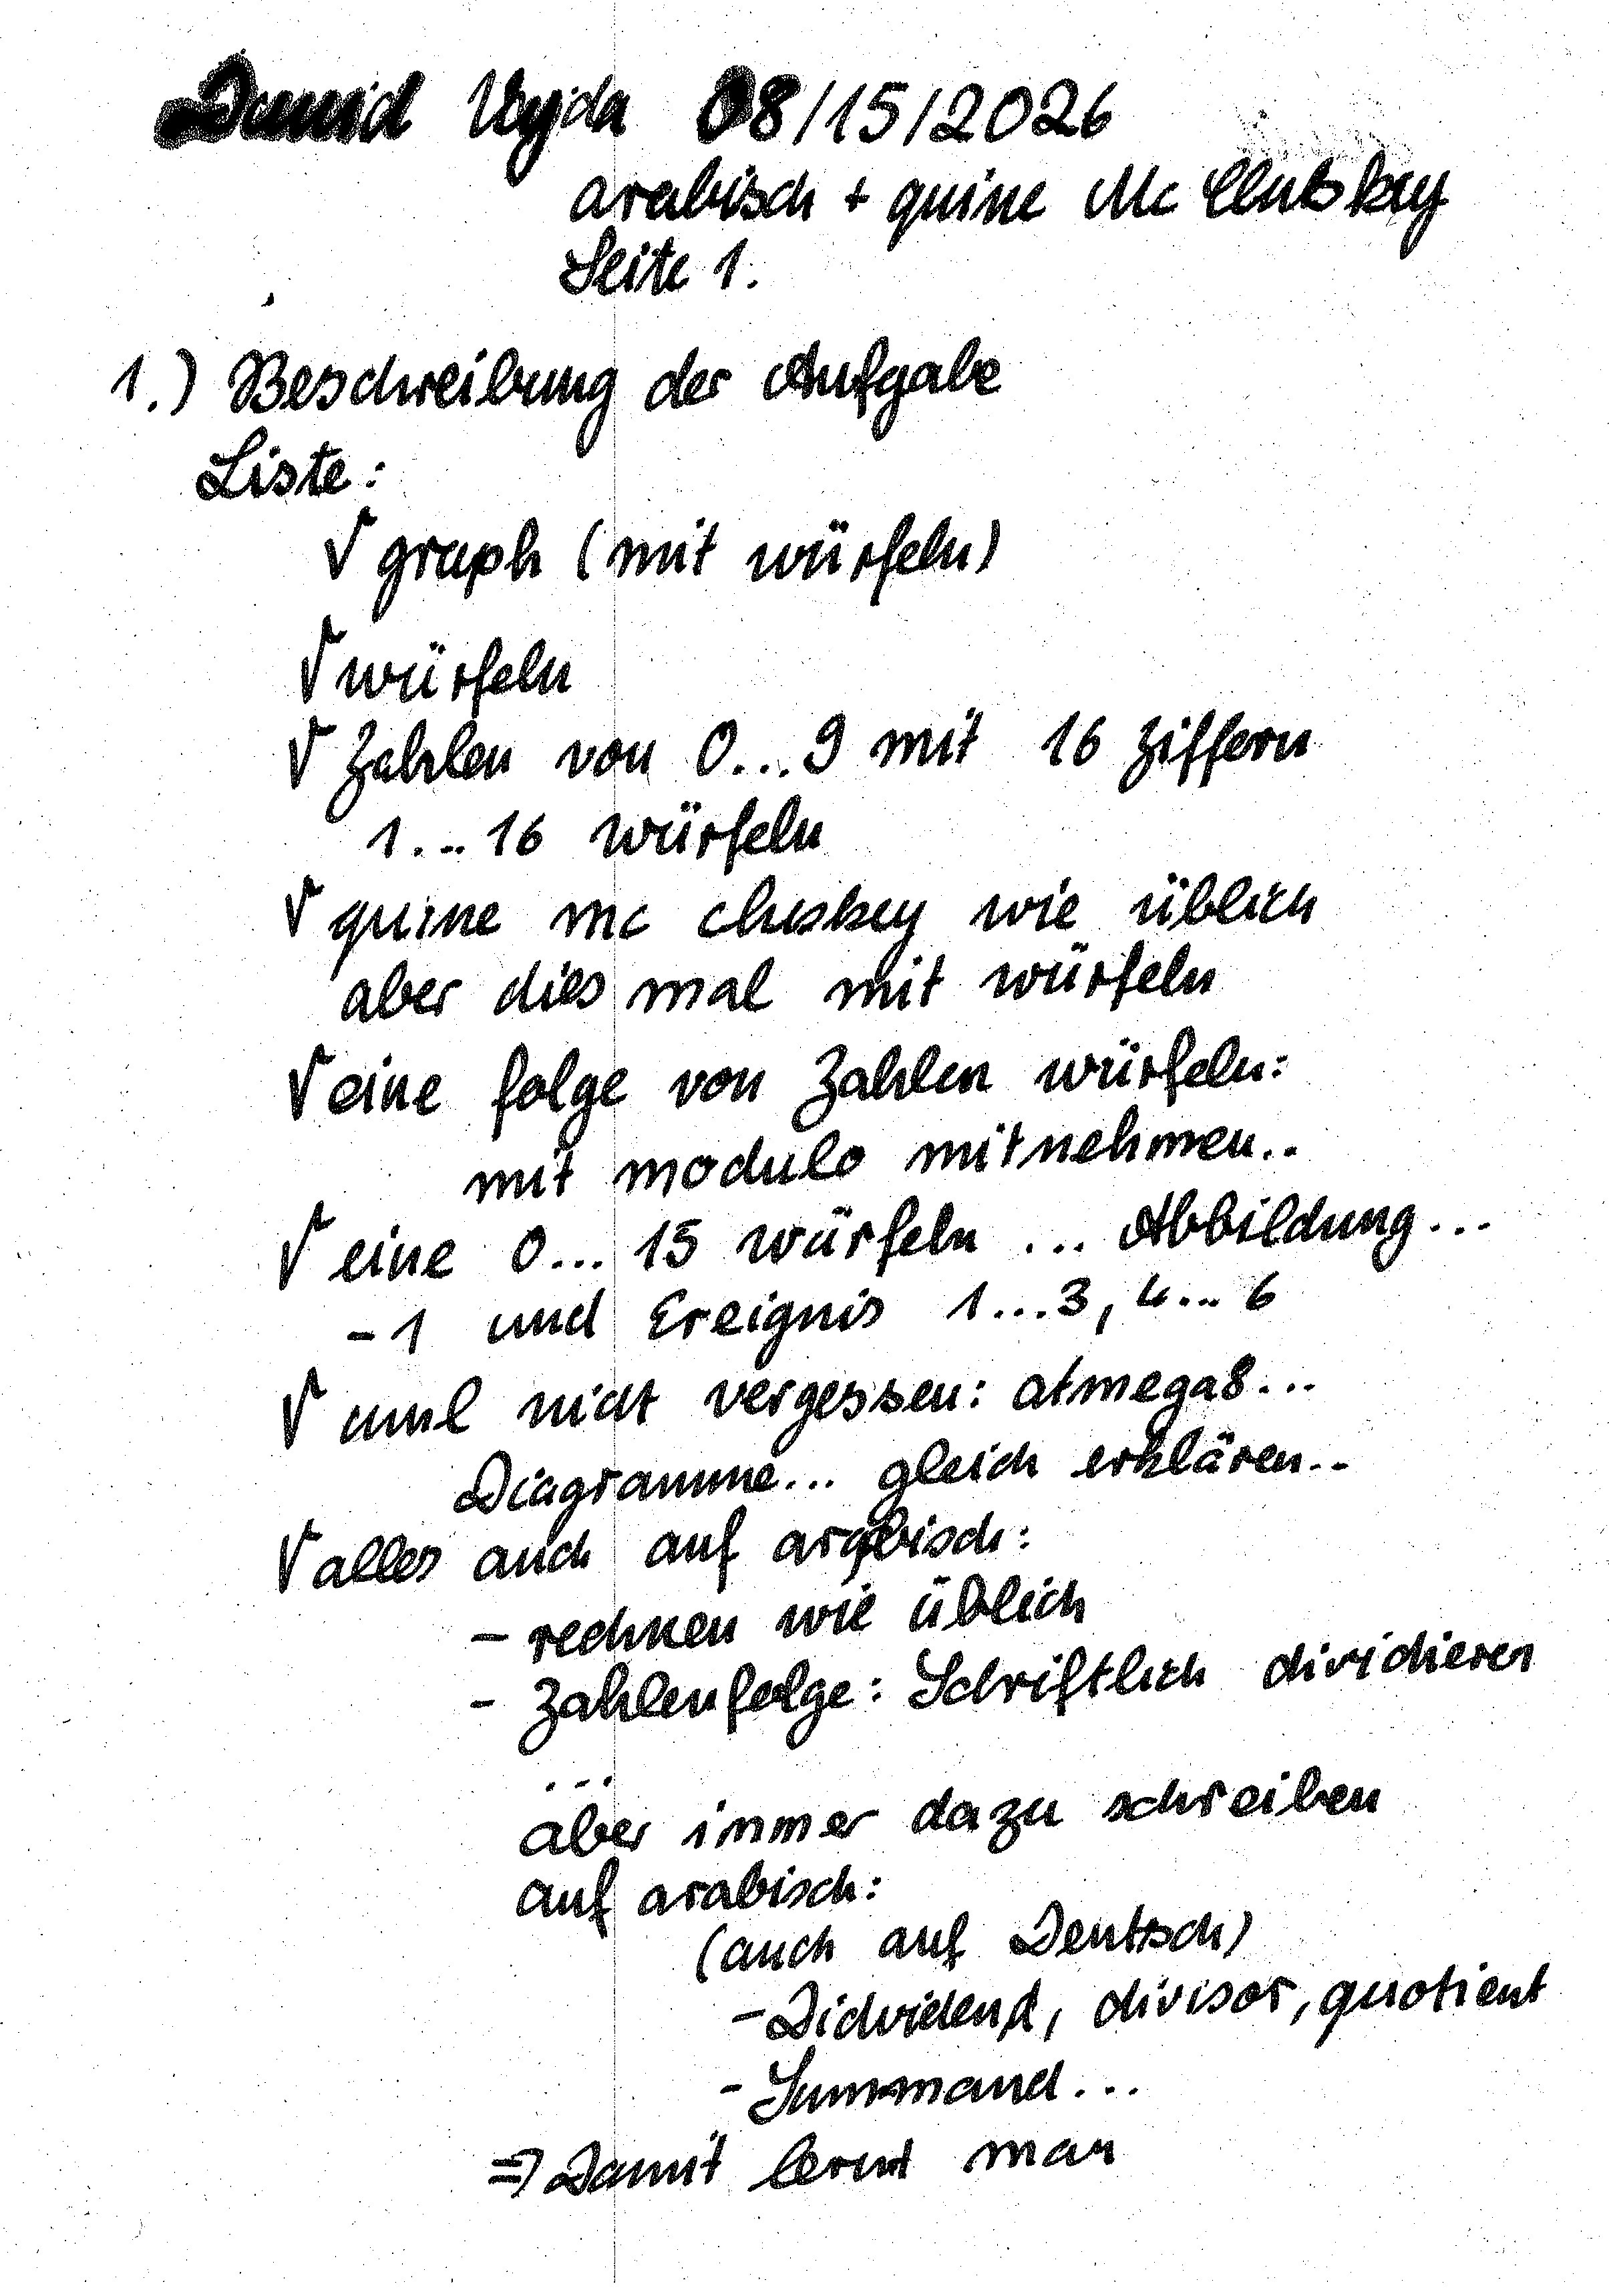 David Vajda 08/15/2026
arabisch + quine Mc Cluskey
Seite 1.
1.) Beschreibung der Aufgabe
Liste:
√ graph (mit würfeln)
√ würfeln
√ Zahlen von 0...9 mit 16 Ziffern
1...16 würfeln
√ quine mc cluskey wie üblich
aber dies mal mit würfeln
√ eine folge von Zahlen würfeln:
mit modulo mitnehmen..
√ eine 0...15 würfeln ... Abbildung...
-1 und Ereignis 1...3, 4...6
√ uml nicht vergessen: atmega8...
Diagramme... gleich erklären..
√ alles auch auf arabisch:
- rechnen wie üblich
- Zahlenfolge: Schriftlich dividieren
...
aber immer dazu schreiben
auf arabisch:
(auch auf Deutsch)
- Didvidend, divisor, quotient
- Summand...
=> Damit lernt man